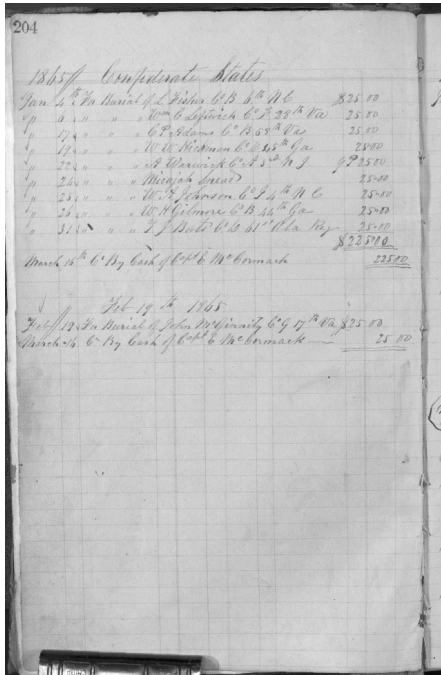 204
1865 // Confederate States
Jan 4th For Burial of L Fisher Co B 6th N C $25.00
" 6 " " " Wm C Leftwich Co F 28th Va 25.00
" 17 " " " C P Adams Co B 58th Va 25.00
" 19 " " " W W Hickman Co 45th Ga 25.00
" 22 " " " A Warwick Co A 3rd N J 25.00
" 26 " " " Micajah 25.00
" 25 " " " W H Johnson Co 4th N C 25.00
" 26 " " " W H Gilmore Co B 44th Ga 25.00
" 31 " " " Co 61st Ala Reg 25.00
$225.00
March 14th Cr By Cash of Capt E McCormack 225.00
Feb 19th 1865
Feb // 19 For Burial of John McGinnity Co G 17th Va $25.00
March 14 Cr By Cash of Capt E McCormack 25.00